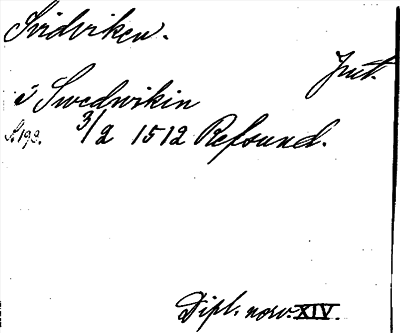 Svidviken.
Jmt.
i Swedwikin
S. 193. 3/2 1512 Refsund.
Dipl. norv. XIV.